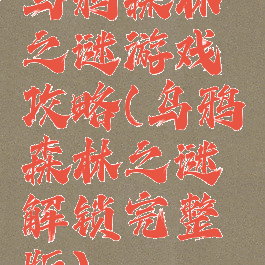 乌鸦森林
之谜游戏
攻略(乌鸦
森林之谜
解锁完整
版)